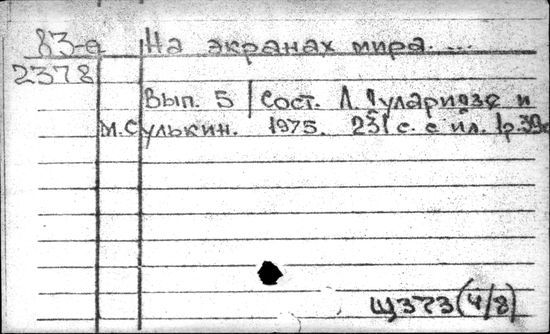 83-а На экранах мира. ...
2378
Вып. 5 / Сост. Л. Гуларидзе и
М. Сулькин. 1975. 231 с. с ил. 1р.39к
Щ373(4/8)